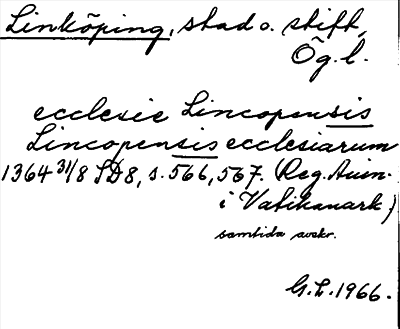 Linköping, stad o. stift,
Ög. l.
ecclesie Lincopensis
Lincopensis ecclesiarum
1364 31/8 SD8, s. 566, 567. (Reg. Avin.
i Vatikanark.)
samtida avskr.
G.L. 1966.